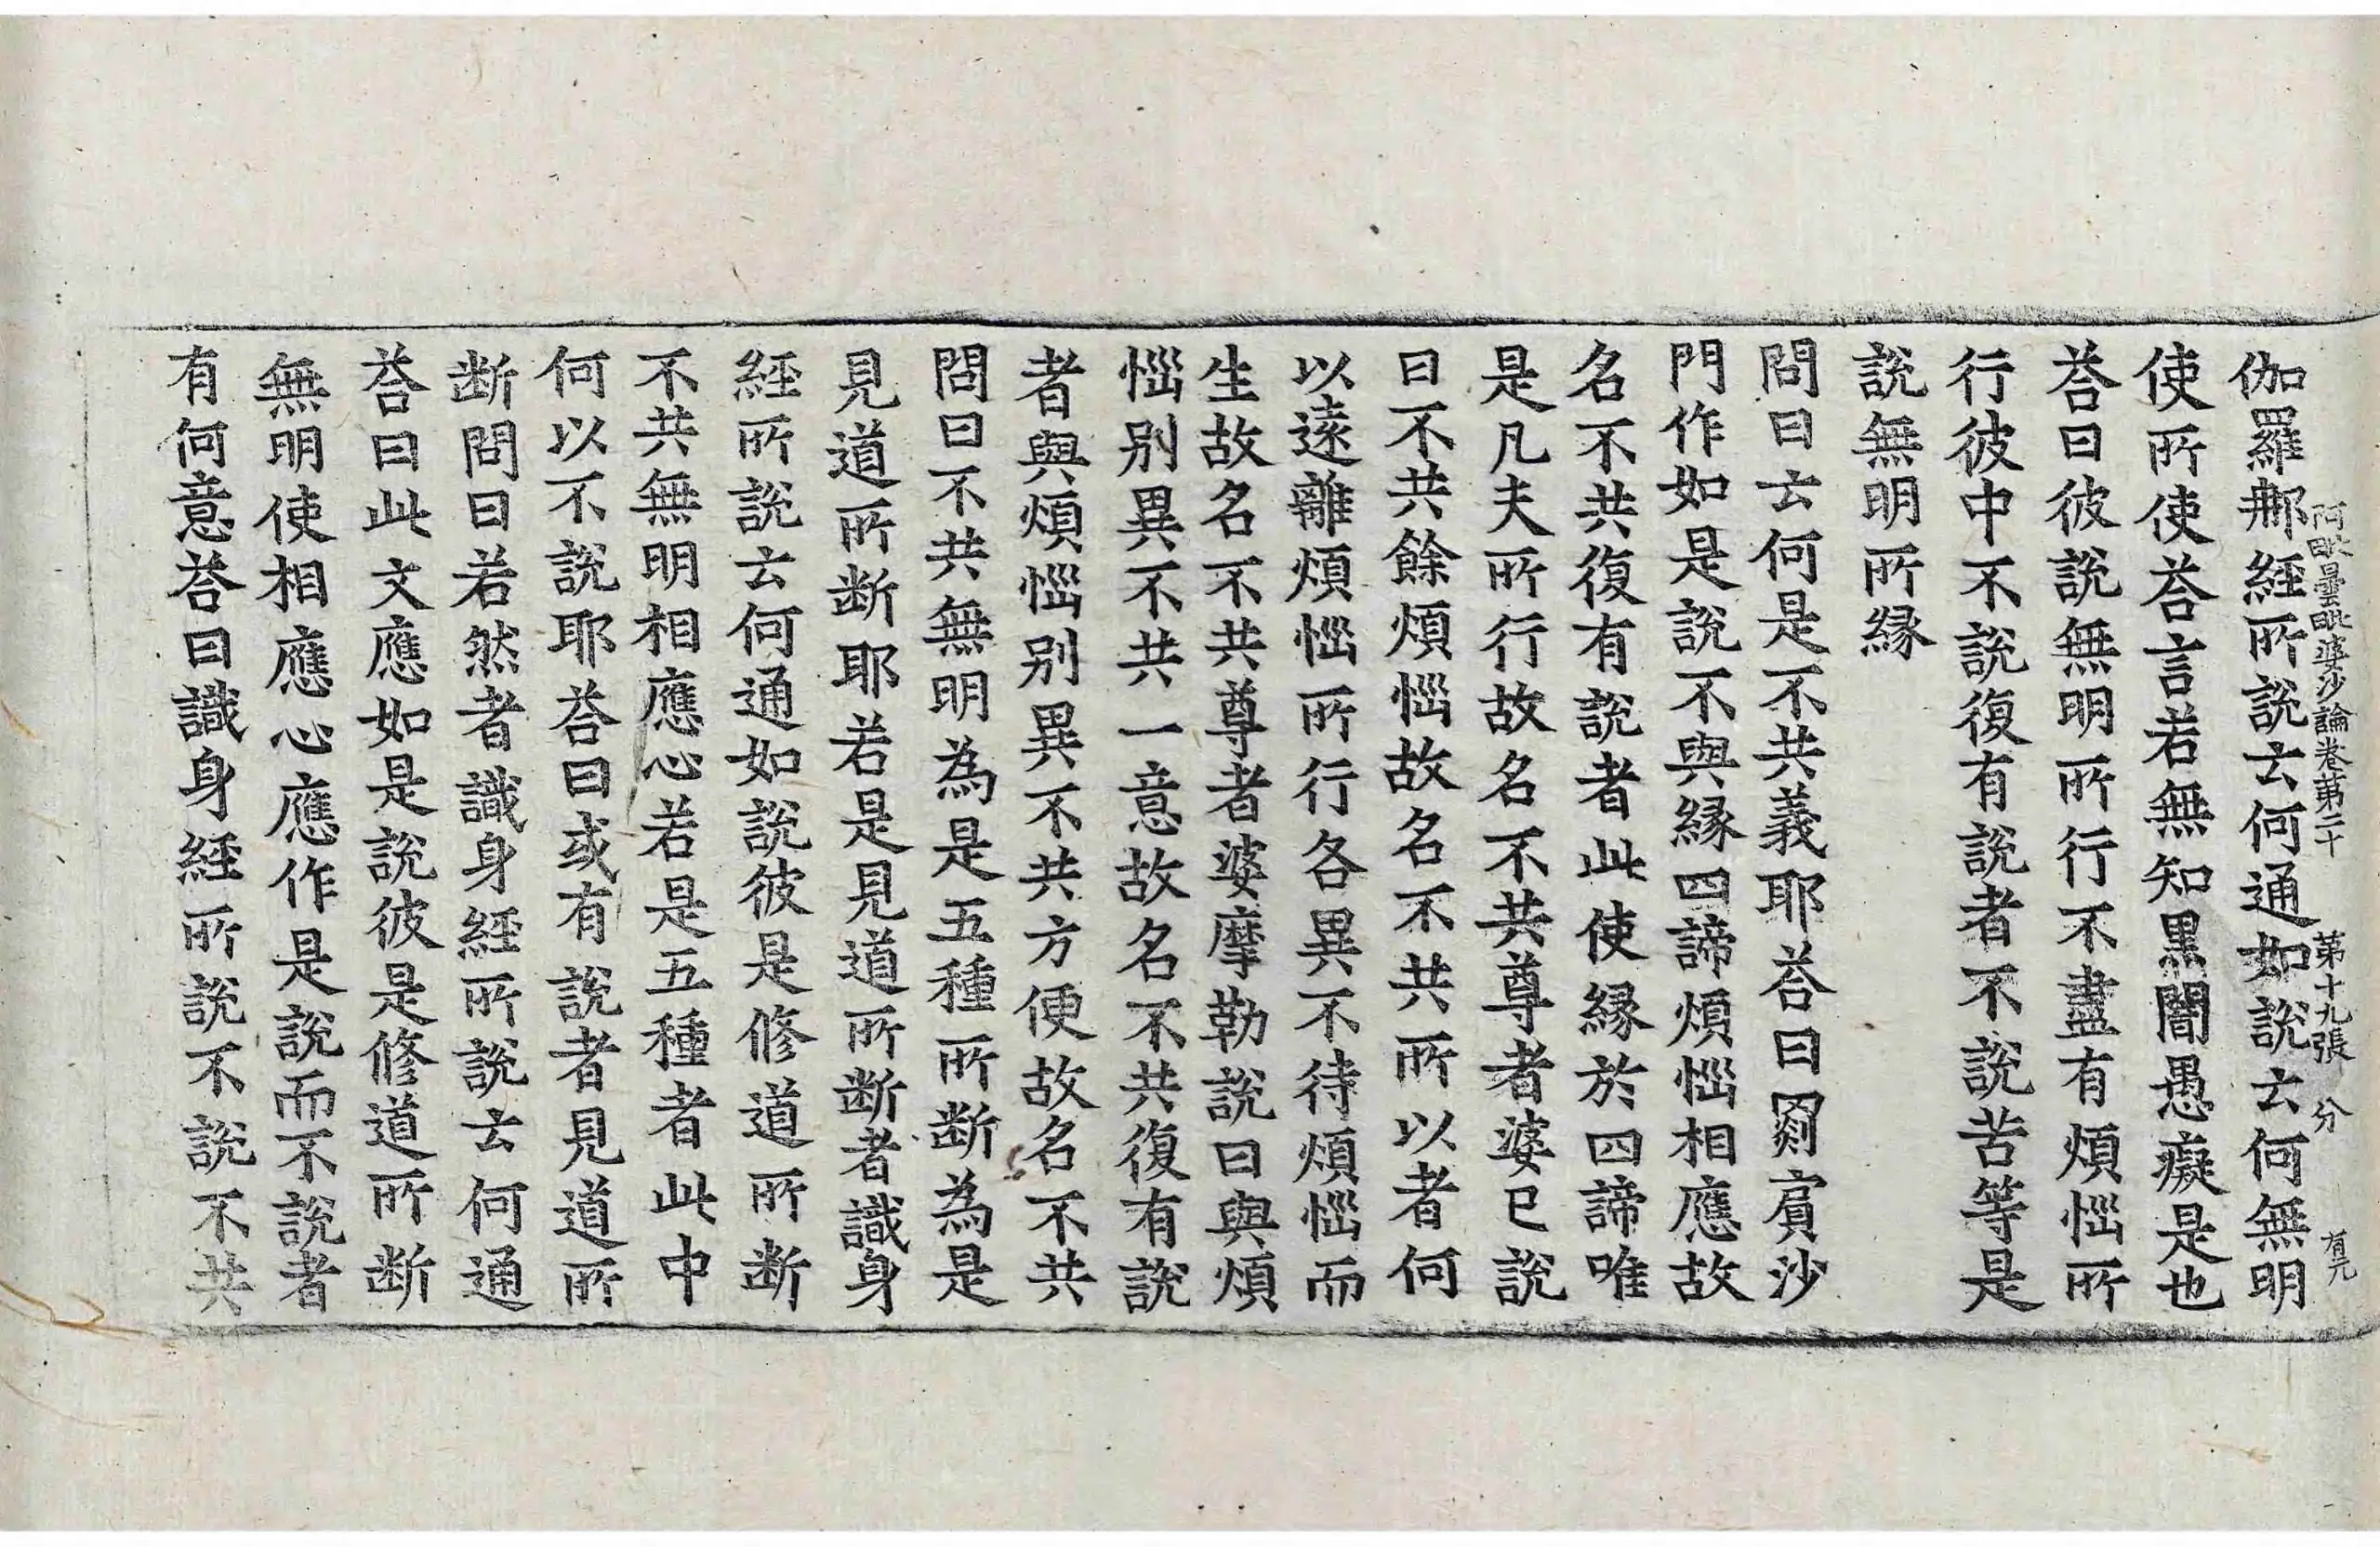 阿毗曇毗婆沙論卷第二十 第十九張 分 有元
伽羅那經所說云何通如說云何無明
使所使荅言若無知黑闇愚癡是也
荅曰彼說無明所行不盡有煩惱所
行彼中不說復有說者不說苦等是
說無明所緣
問曰云何是不共義耶荅曰罽賓沙
門作如是說不與緣四諦煩惱相應故
名不共復有說者此使緣於四諦唯
是凡夫所行故名不共尊者婆已說
曰不共餘煩惱故名不共所以者何
以遠離煩惱所行各異不待煩惱而
生故名不共尊者婆摩勒說曰與煩
惱別異不共一意故名不共復有說
者與煩惱別異不共方便故名不共
問曰不共無明為是五種所斷為是
見道所斷耶若是見道所斷者識身
經所說云何通如說彼是修道所斷
不共無明相應心若是五種者此中
何以不說耶荅曰或有說者見道所
斷問曰若然者識身經所說云何通
荅曰此文應如是說彼是修道所斷
無明使相應心應作是說而不說者
有何意荅曰識身經所說不說不共